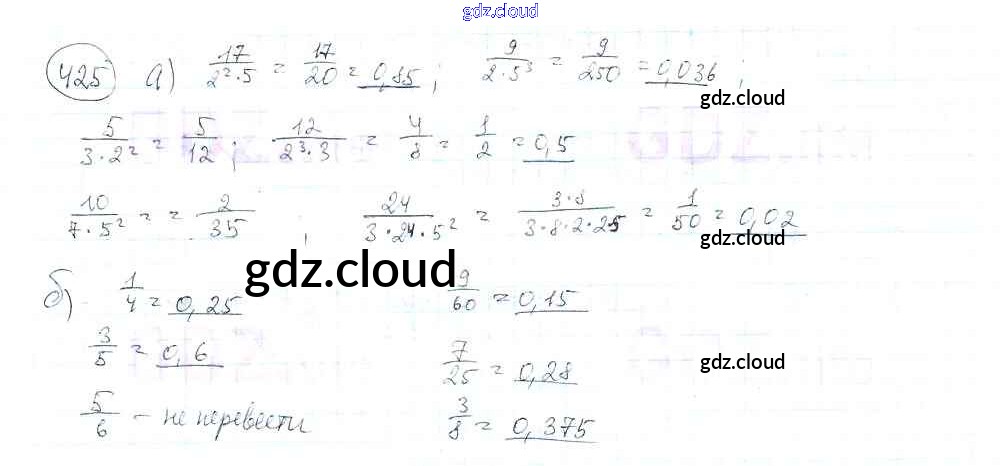 gdz.cloud
425 а) 17/(2²·5) = 17/20 = 0,85; 9/(2·5³) = 9/250 = 0,036;
gdz.cloud
5/(3·2²) = 5/12; 12/(2³·3) = 4/8 = 1/2 = 0,5
10/(7·5²) = = 2/35; 24/(3·2⁴·5²) = 3·8/(3·8·2·25) = 1/50 = 0,02
gdz.cloud
gdz.cloud
б) 1/4 = 0,25 9/60 = 0,15
3/5 = 0,6 7/25 = 0,28
gdz.cloud
5/6 – не перевести 3/8 = 0,375